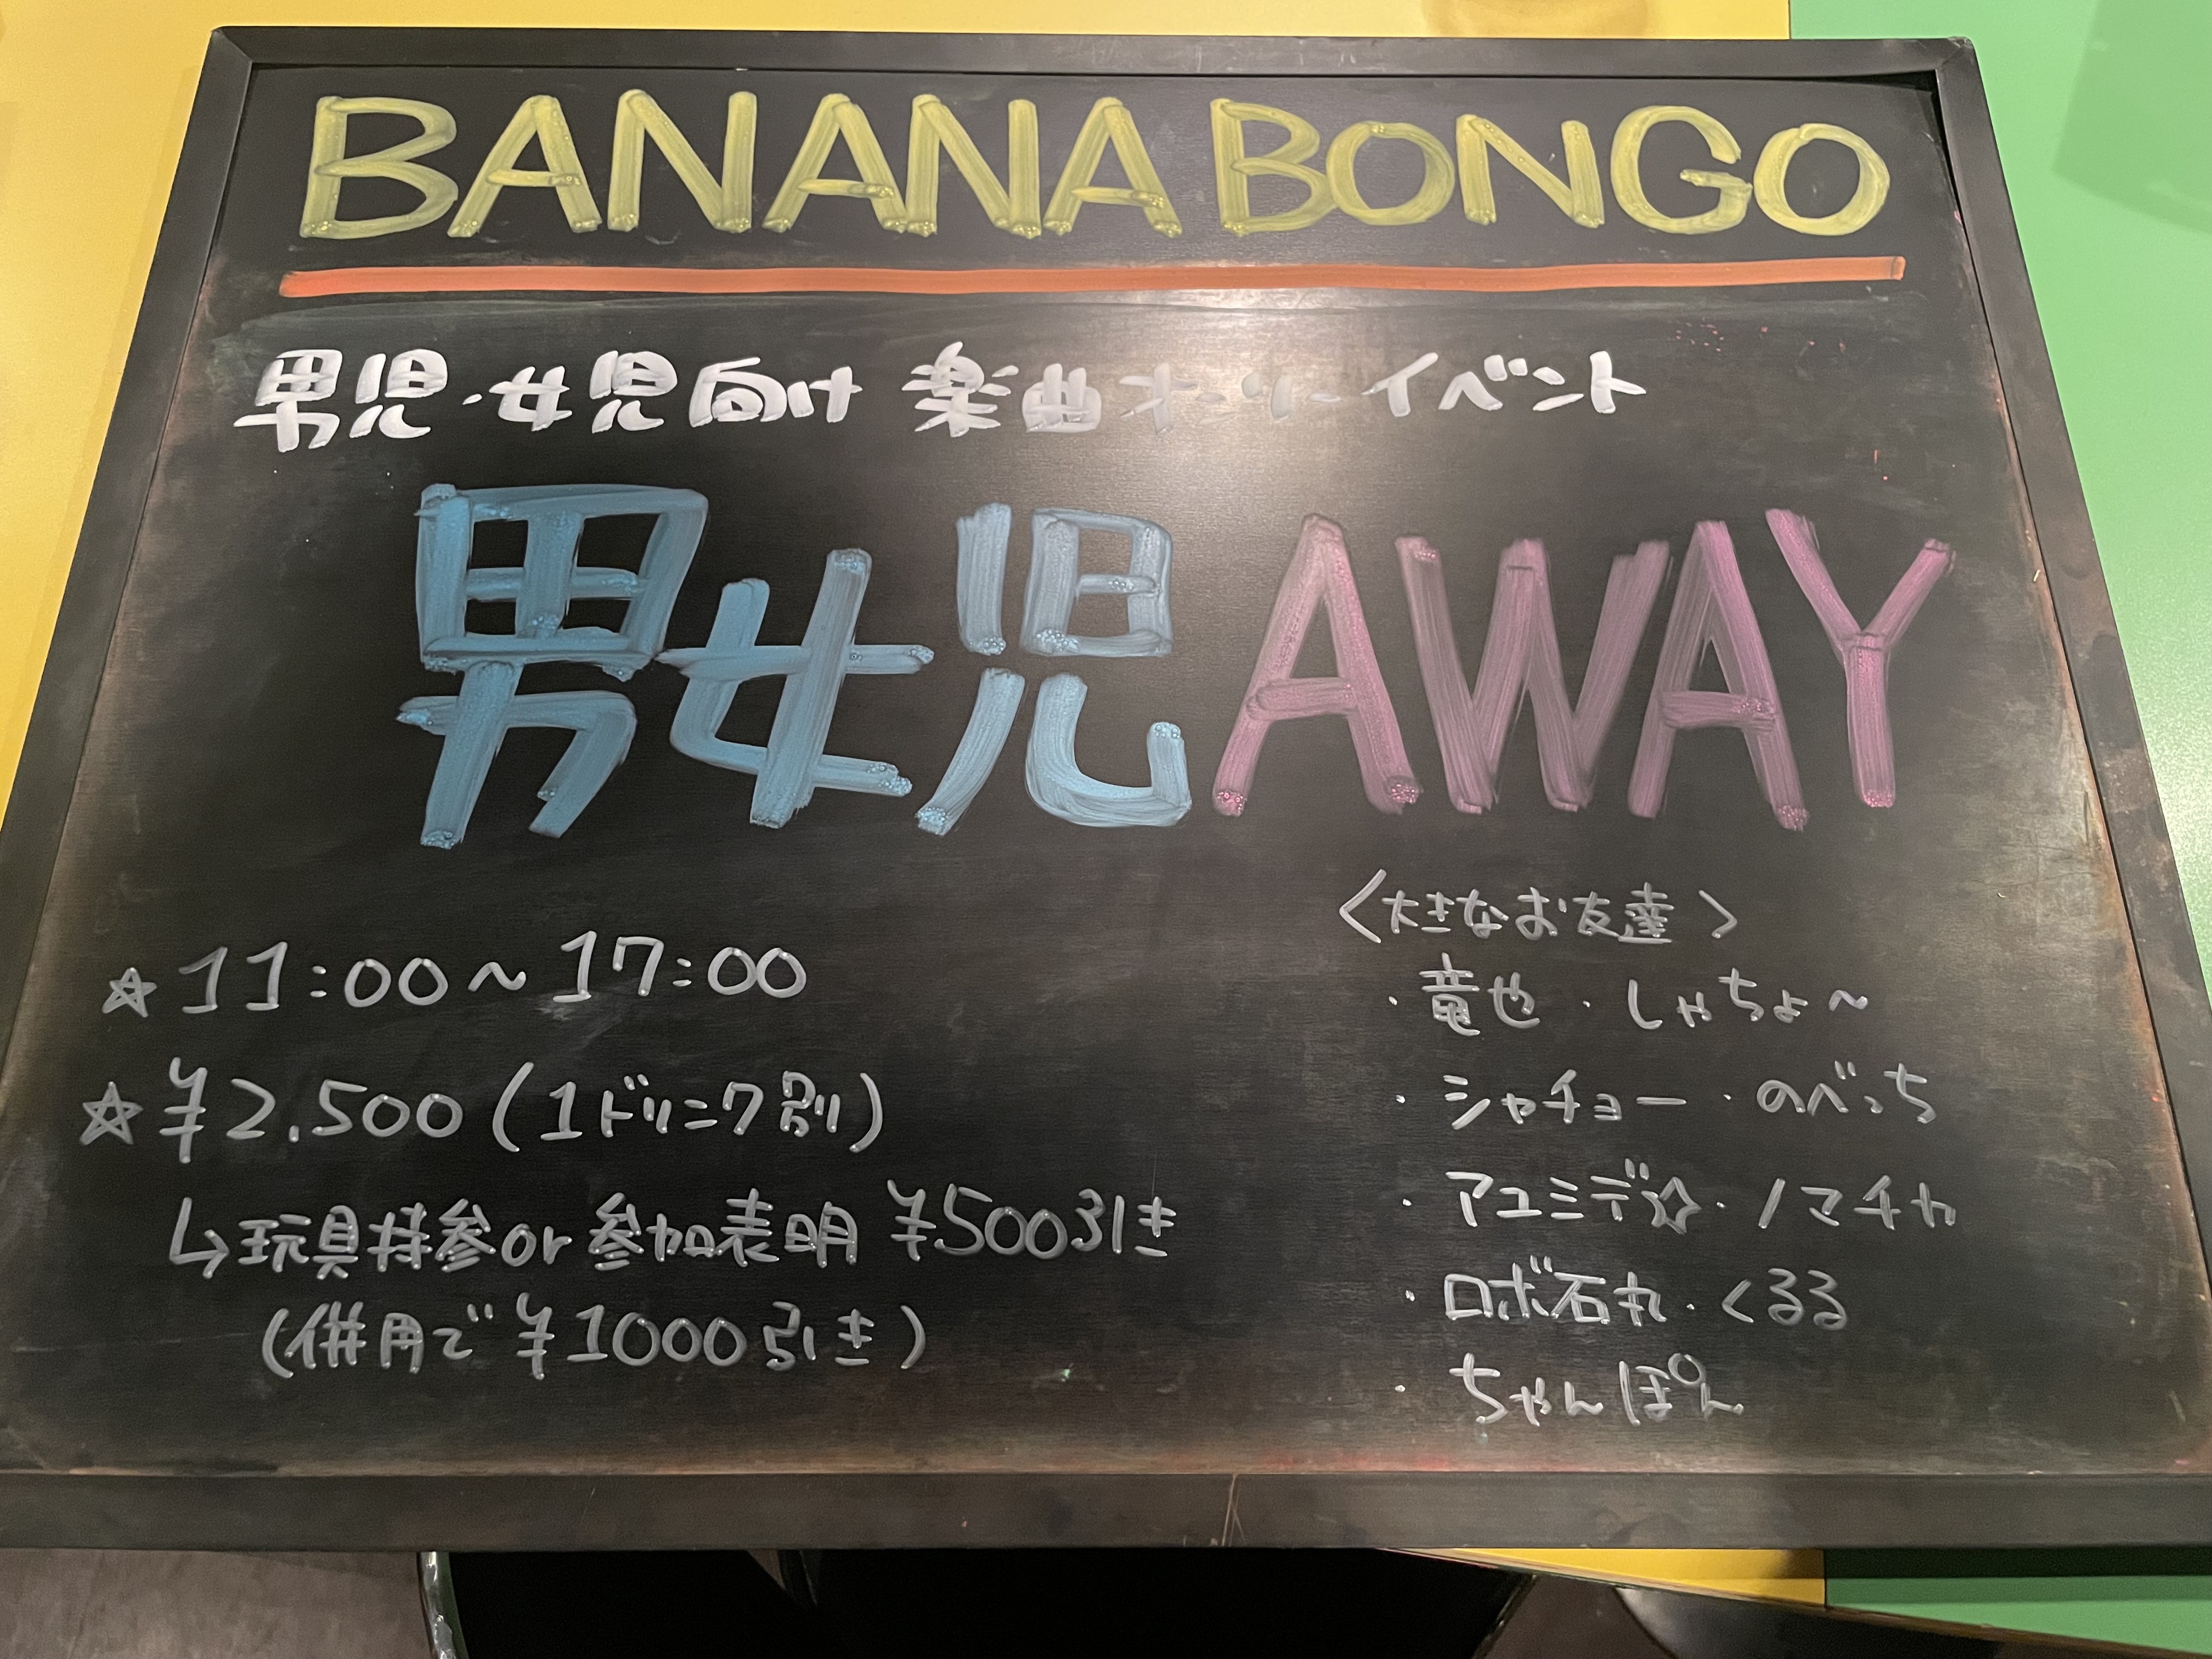 BANANA BONGO
男児・女児向け 楽曲オンリーイベント
男女児AWAY
☆11:00～17:00
☆¥2,500(1ドリンク別)
↳玩具持参or参加表明 ¥500引き
(併用で¥1000引き)
<大きなお友達>
・竜也・しゃちょ～
・シャチョー・のべっち
・アユミデ☆・ノマチカ
・ロボ石丸・くるる
・ちゃんぽん